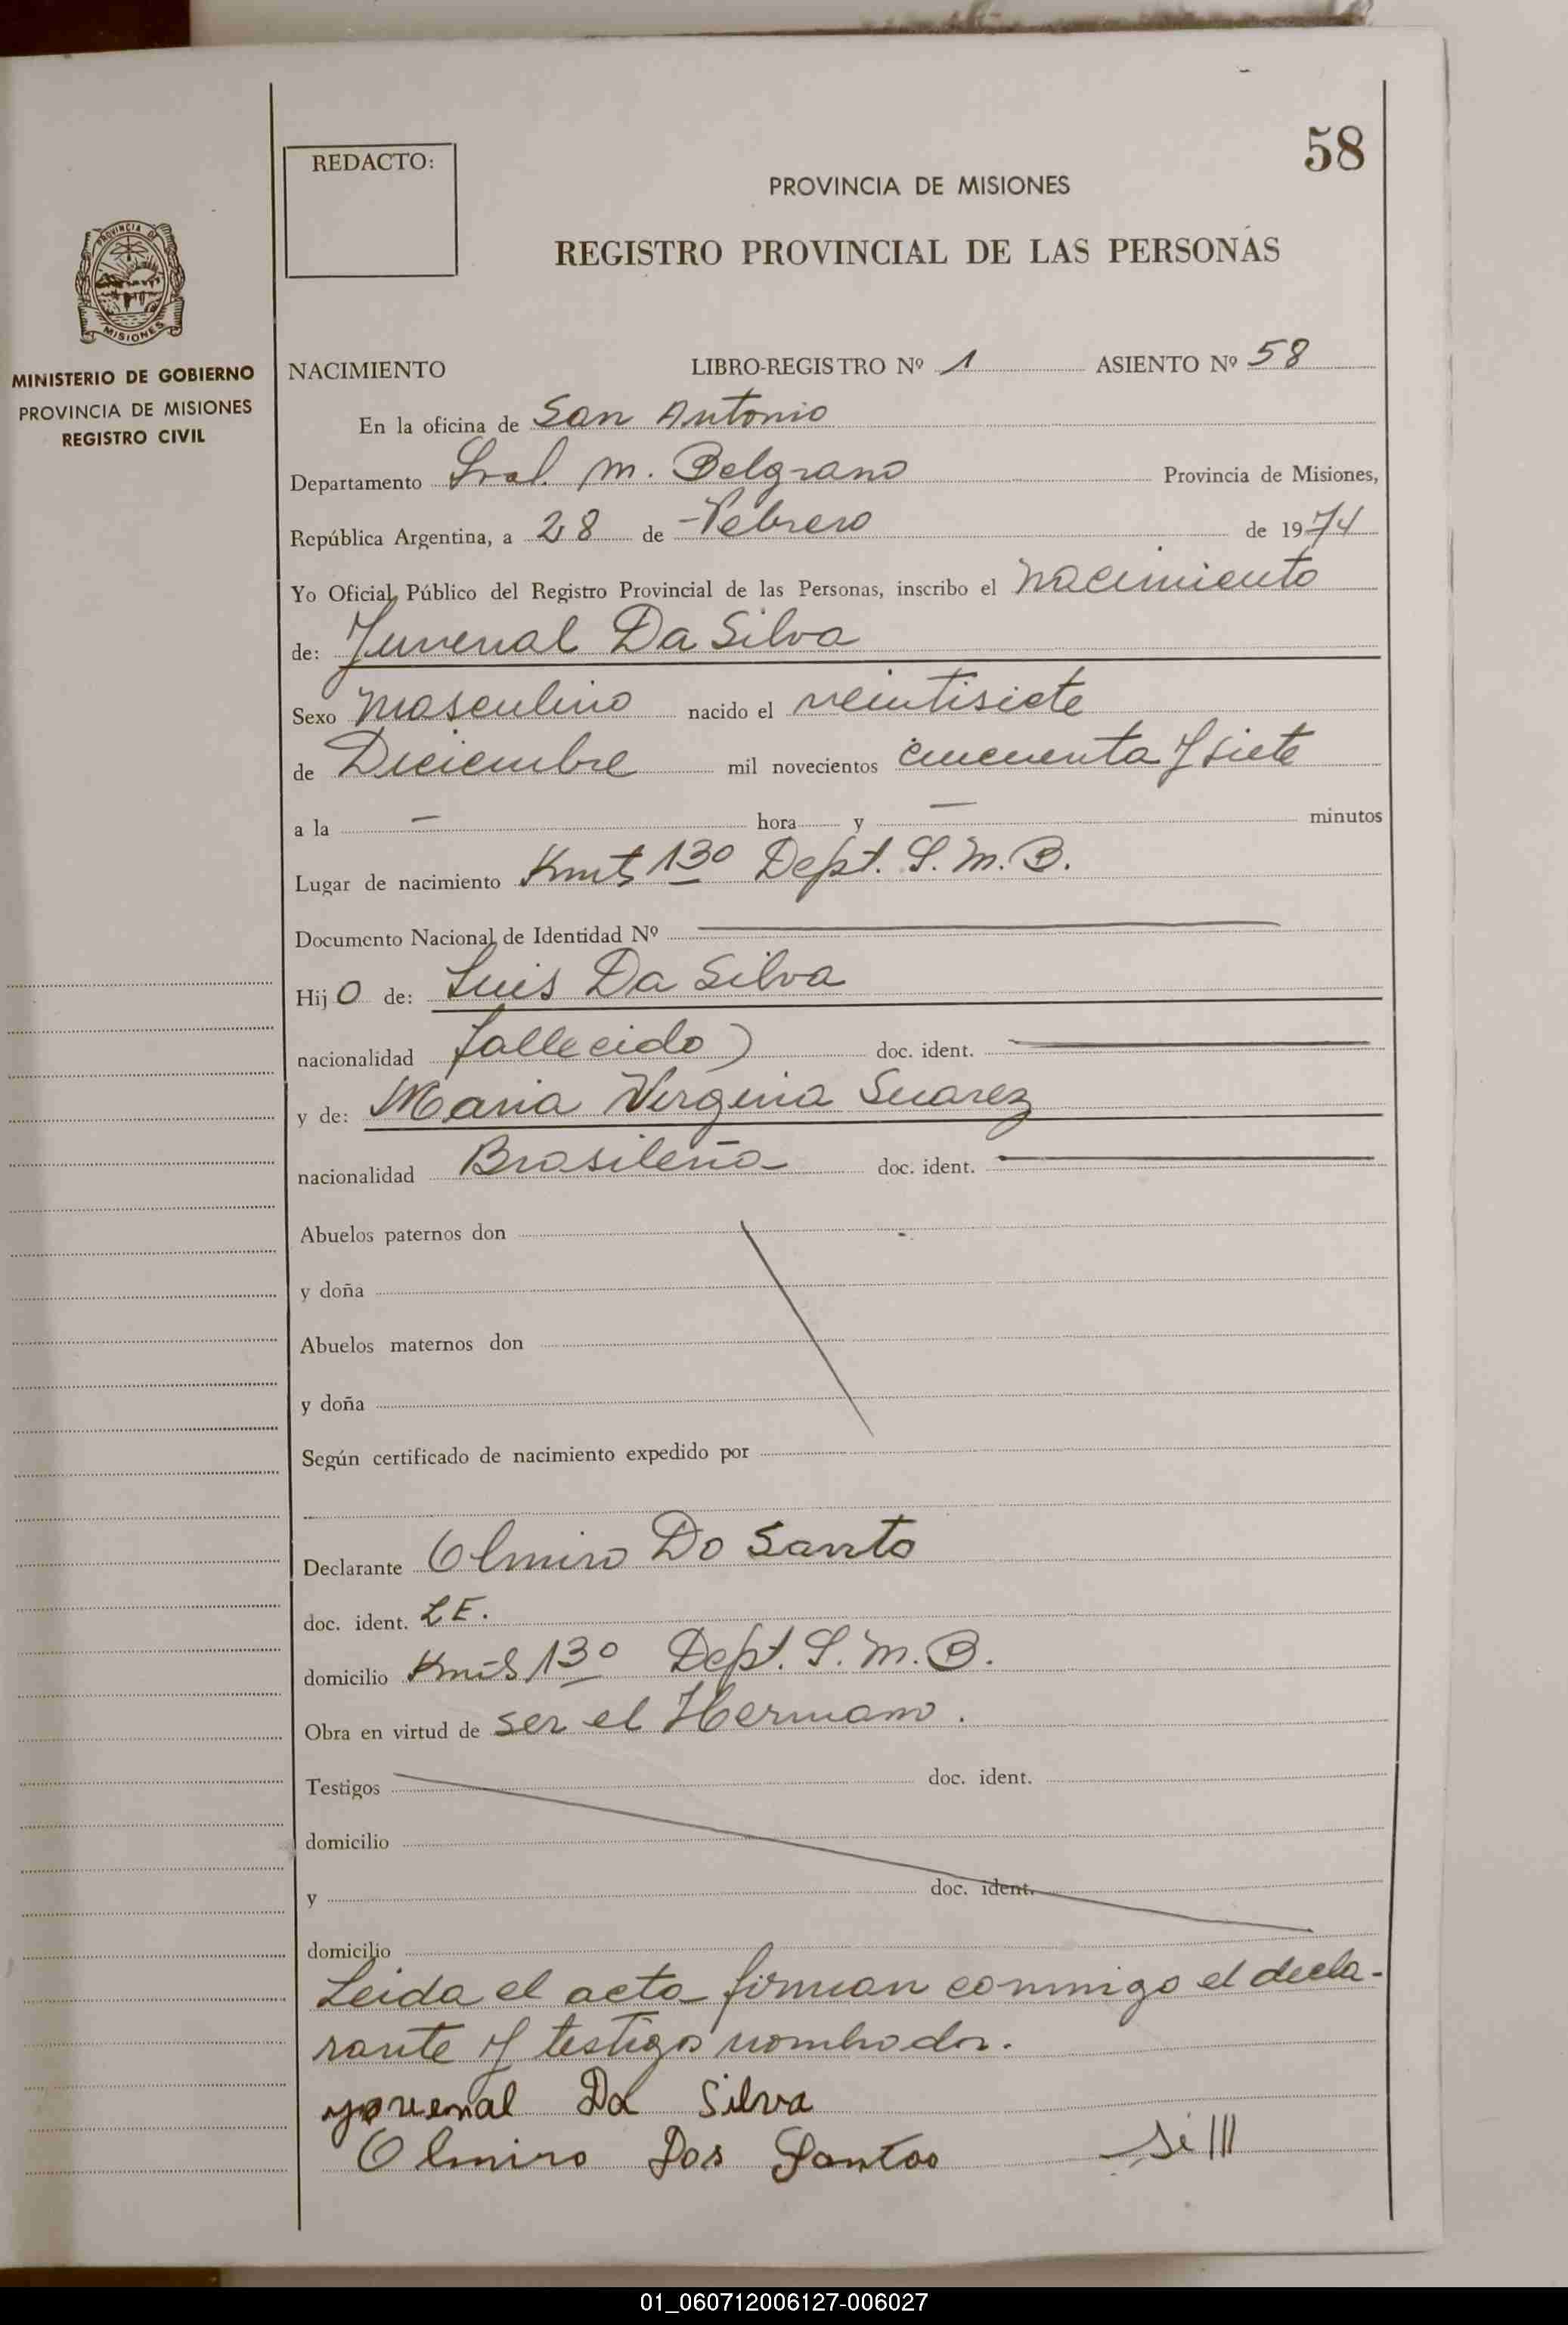 58
REDACTO:
PROVINCIA DE MISIONES
REGISTRO PROVINCIAL DE LAS PERSONAS
PROVINCIA DE
MISIONES
MINISTERIO DE GOBIERNO
PROVINCIA DE MISIONES
REGISTRO CIVIL
NACIMIENTO LIBRO-REGISTRO Nº 1 ASIENTO Nº 58
En la oficina de San Antonio
Departamento Gral. M. Belgrano Provincia de Misiones,
República Argentina, a 28 de Febrero de 1974
Yo Oficial Público del Registro Provincial de las Personas, inscribo el nacimiento
de: Juvenal Da Silva
Sexo masculino nacido el veintisiete
de Diciembre mil novecientos cincuenta y siete
a la — hora y — minutos
Lugar de nacimiento Kmts 130 Dept. G. M. B.
Documento Nacional de Identidad Nº
Hijo de: Luis Da Silva
nacionalidad fallecido) doc. ident.
y de: Maria Virginia Suarez
nacionalidad Brasileña doc. ident.
Abuelos paternos don
y doña
Abuelos maternos don
y doña
Según certificado de nacimiento expedido por
Declarante Olmiro Do Santo
doc. ident. LE.
domicilio Kmts 130 Dept. G. M. B.
Obra en virtud de ser el Hermano.
Testigos doc. ident.
domicilio
y doc. ident.
domicilio
Leida el acta firman conmigo el decla-
rante y testigos nombrados.
Da Silva
Olmiro Dos Santos
01_060712006127-006027